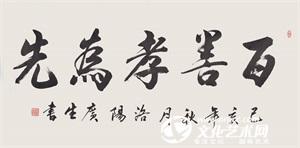 百善孝為先
己亥年秋月洛陽廣生書
文化艺术网